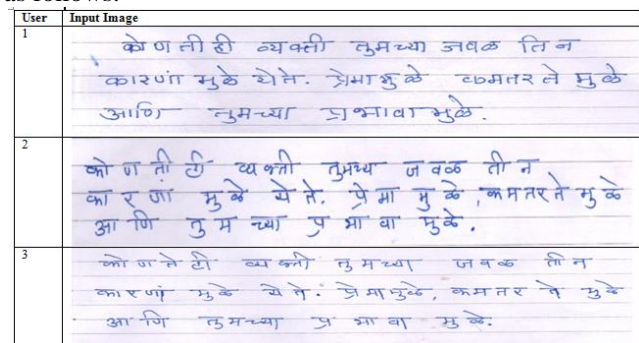 as follows:
User Input Image
1
कोणतीही व्यक्ती तुमच्या जवळ तिन
कारणां मुळे येते. प्रेमामुळे कमतरते मुळे
आणि तुमच्या प्रभावामुळे.
2
कोणतीही व्यक्ती तुमच्य जवळ तीन
कारणा मुळे येते. प्रेमा मुळे, कमतरतेमुळे
आणि तुमच्या प्रभावा मुळे.
3
कोणतेही व्यक्ती तुमच्या जवळ तीन
कारणां मुळे येते. प्रेमामुळे, कमतर ते मुळे
आणि तुमच्या प्रभावा मुळे.